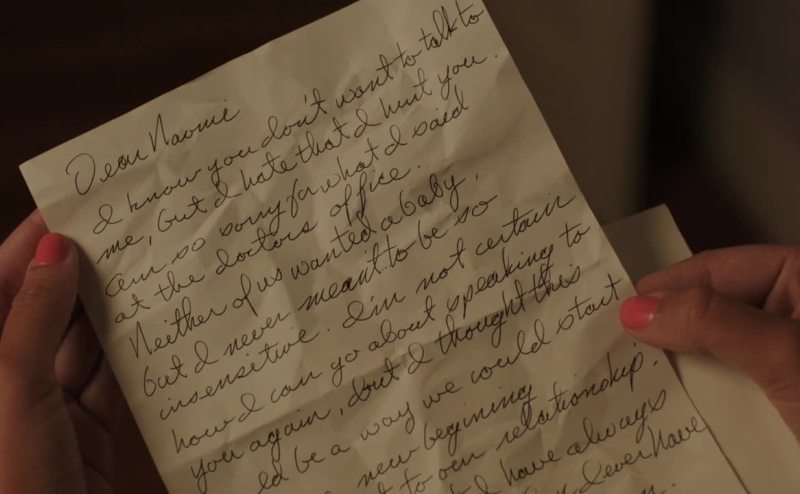 Dear Naomi
I know you don't want to talk to
me, but I hate that I hurt you.
am so sorry for what I said
at the doctors office.
Neither of us wanted a baby,
but I never meant to be so
insensitive. I'm not certain
how I can go about speaking to
you again, but I thought this
ld be a way we could start
new begining
to our relationship.
I have always
I ever have